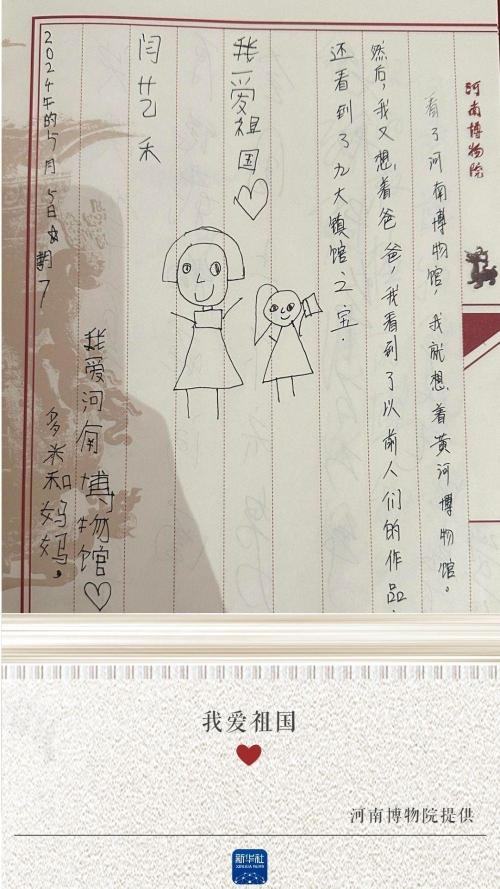 河南博物院
看了河南博物馆，我就想着黄河博物馆。
然后，我又想着爸爸，我看到了以前人们的作品.
还看到了九大镇馆之宝.
我爱祖国♡
闫艺禾
我爱河南博物馆♡
多米和妈妈，
2024年的5月5日期7
我爱祖国
河南博物院提供
新华社
XINHUA NEWS